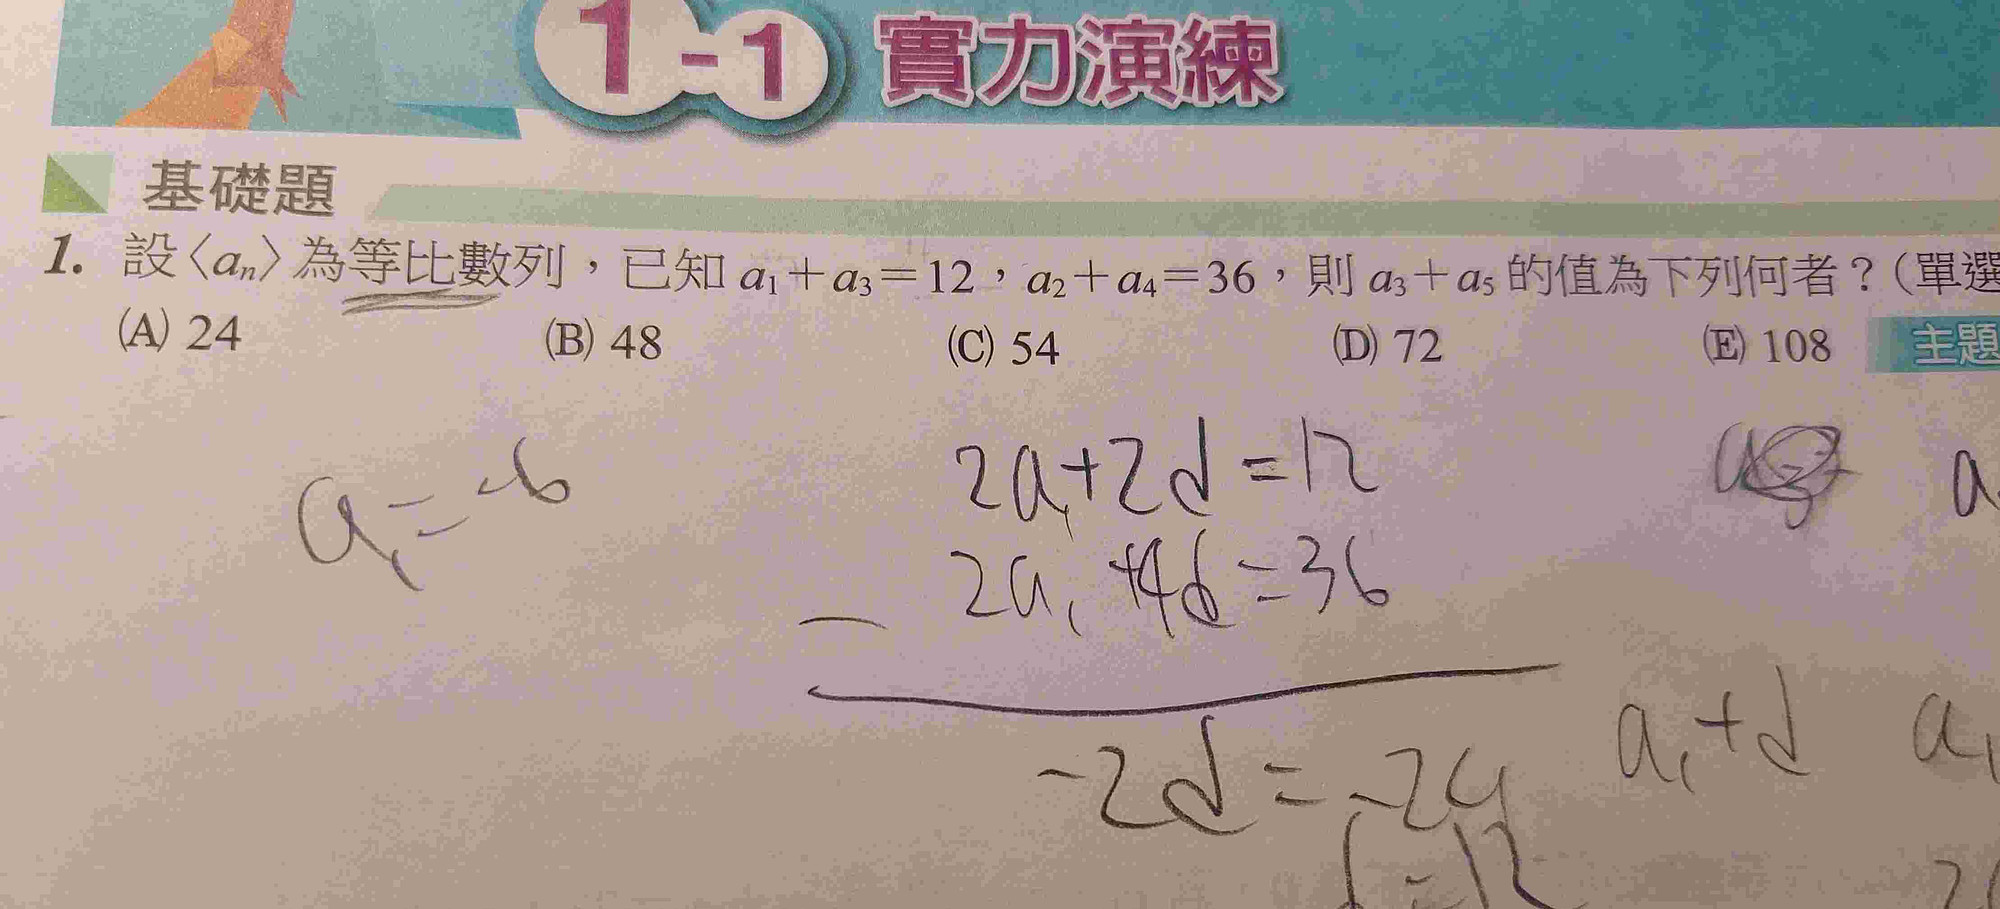 1-1 實力演練
基礎題
1. 設〈aₙ〉為等比數列，已知 a₁＋a₃＝12，a₂＋a₄＝36，則 a₃＋a₅ 的值為下列何者？（單選
(A) 24 (B) 48 (C) 54 (D) 72 (E) 108 主題
a₁=-6
2a₁+2d=12
2a₁+4d=36
-2d=-24
a₁+d a₁
d=12